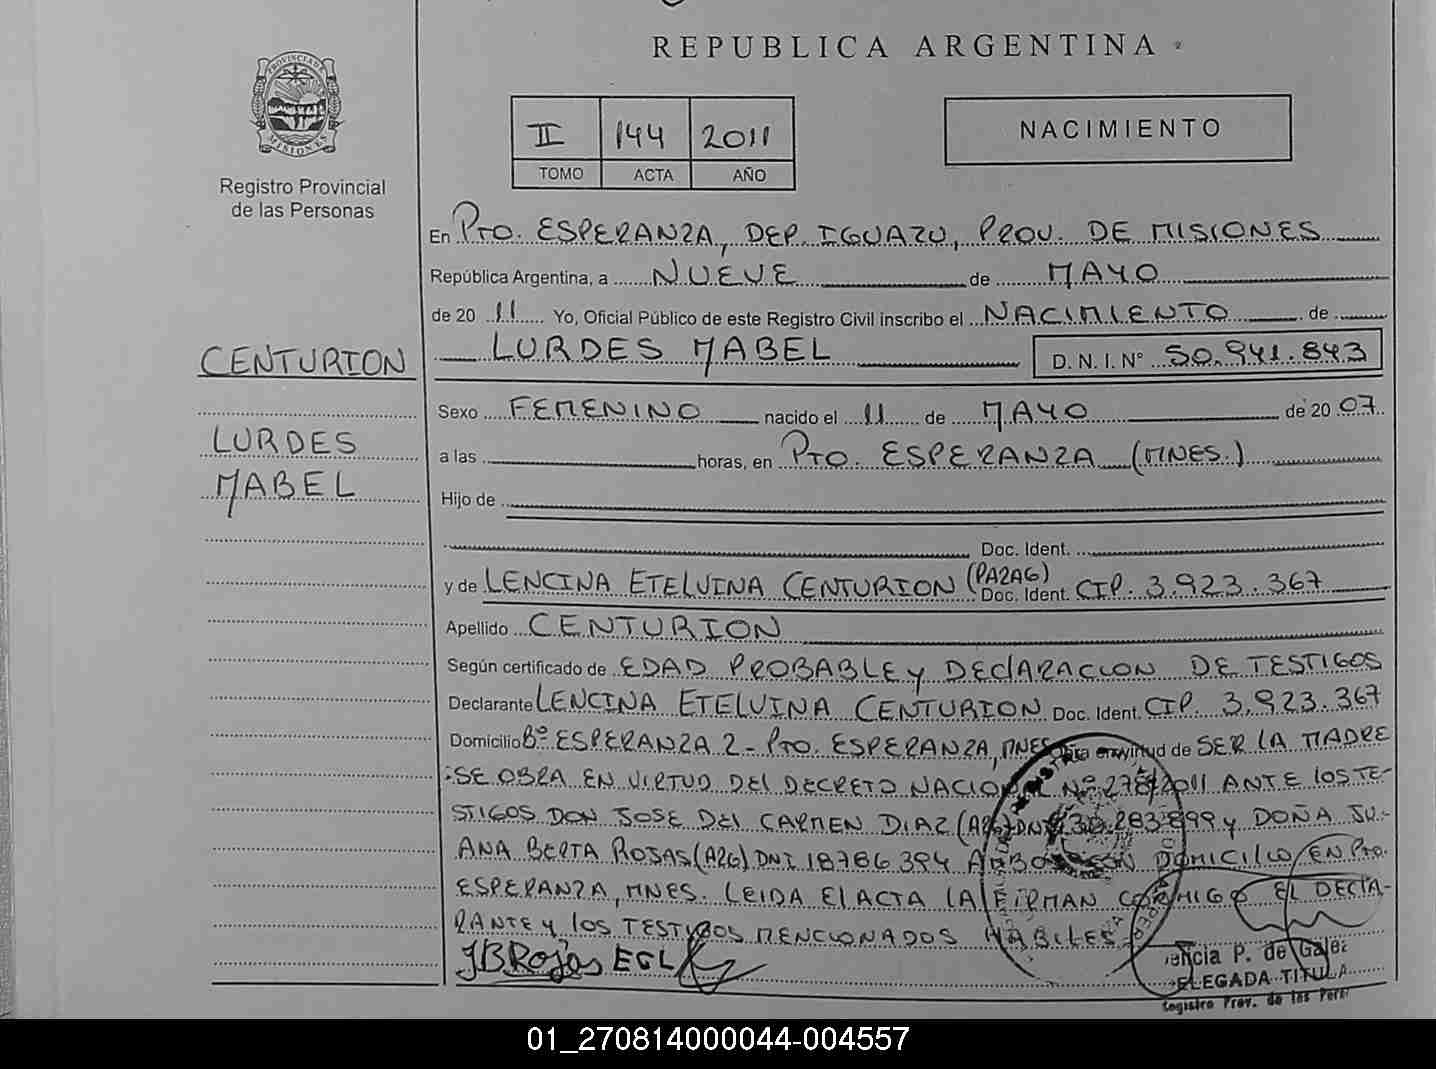 REPUBLICA ARGENTINA
PROVINCIA DE MISIONES
Registro Provincial
de las Personas
II 144 2011
TOMO ACTA AÑO
NACIMIENTO
En Pto. ESPERANZA, DEP. IGUAZU, PROV. DE MISIONES
República Argentina, a NUEVE de MAYO
de 20 11 Yo, Oficial Público de este Registro Civil inscribo el NACIMIENTO de
LURDES MABEL D. N. I. N° 50.941.843
CENTURION
LURDES
MABEL
Sexo FEMENINO nacido el 11 de MAYO de 20 07
a las horas, en Pto. ESPERANZA (MNES.)
Hijo de
Doc. Ident.
y de LENCINA ETELVINA CENTURION (PARAG) Doc. Ident. CIP. 3.923.367
Apellido CENTURION
Según certificado de EDAD PROBABLE y DECLARACION DE TESTIGOS
Declarante LENCINA ETELVINA CENTURION Doc. Ident. CIP. 3.923.367
Domicilio B° ESPERANZA 2 - Pto. ESPERANZA, MNES Obra en virtud de SER LA MADRE
SE OBRA EN VIRTUD DEL DECRETO NACIONAL N° 278/2011 ANTE LOS TE-
STIGOS DON JOSE DEL CARMEN DIAZ (ARG) DNI 30.283.899 y DOÑA JU-
ANA BERTA ROJAS (ARG) DNI 18786394 AMBOS CON DOMICILIO EN Pto.
ESPERANZA, MNES. LEIDA EL ACTA LA FIRMAN CONMIGO EL DECLA-
RANTE y LOS TESTIGOS MENCIONADOS HABILES
JB Rojas ECL
P. de
ELEGADA TITULA
Registro Prov. de las Pers
01_270814000044-004557